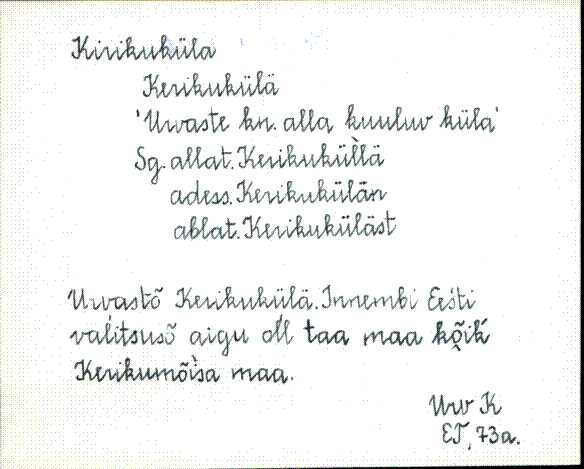 Kirikuküla
Kerikukülä
'Urvaste kn. alla kuuluv küla'
Sg. allat. Kerikukül̀lä
adess. Kerikukülän
ablat. Kerikuküläst
Urvastõ Kerikukülä. Innembi Eesti
valitsusõ aigu oĺl taa maa kõ̭iḱ
Kerikumõìsa maa.
Urv K
ET, 73a.